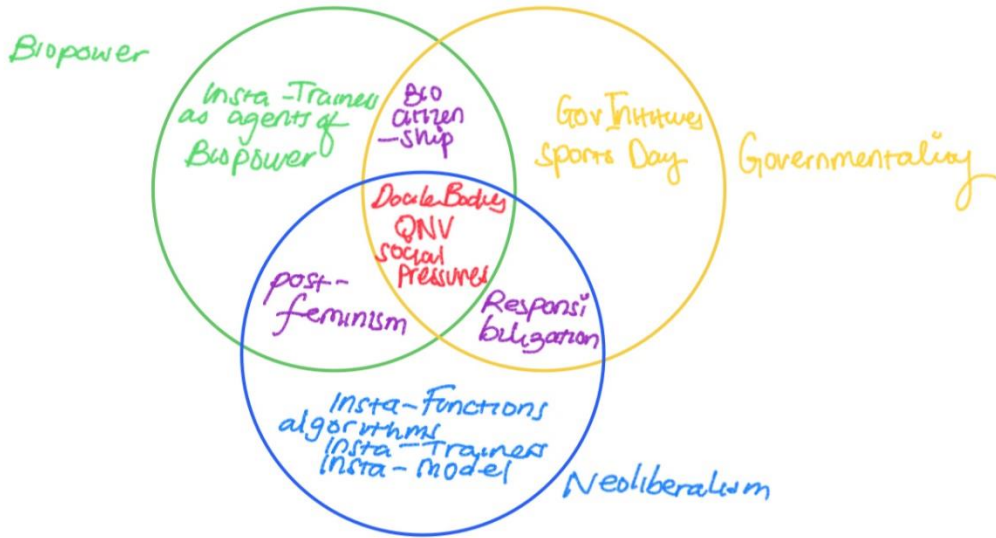 Biopower
Insta-Trainers
as agents of
Biopower
Bio
citizen
-ship
Gov Initiatives
sports Day
Governmentality
Docile Bodies
QNV
social
Pressures
post-
feminism
Responsi
bilization
Insta-Functions
algorithms
Insta-Trainers
Insta-model
Neoliberalism